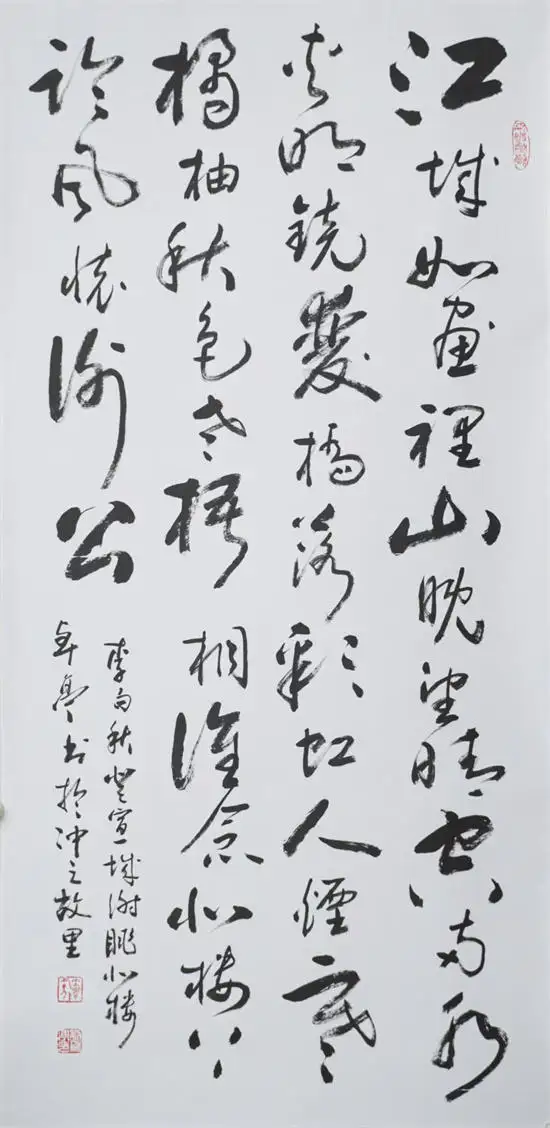 江城如畫裡山晚望晴空两水
夹明镜雙橋落彩虹人煙寒
橘柚秋色老梧桐誰念北楼上
临风懷謝公
李白秋登宣城谢朓北楼
年亭书於冲之故里